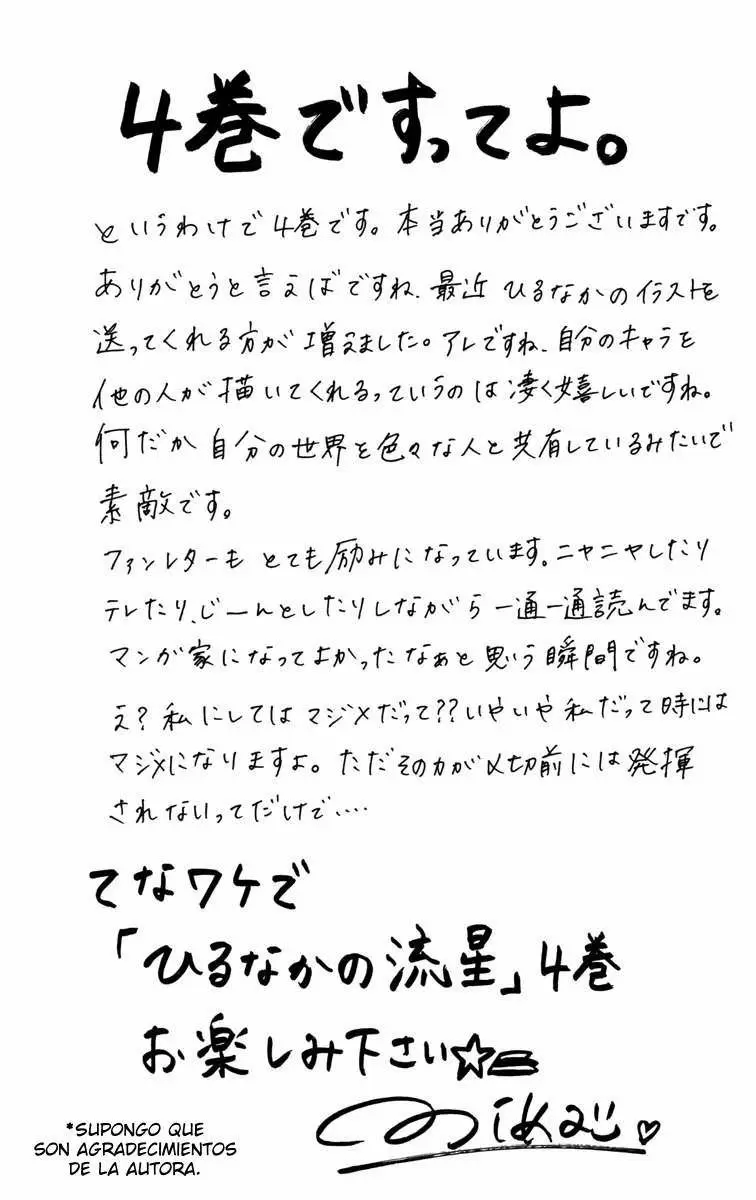 4巻ですってよ。
というわけで4巻です。本当ありがとうございますです。
ありがとうと言えばですね、最近 ひるなかのイラストを
送ってくれる方が 増えました。アレですね、自分のキャラを
他の人が 描いてくれるっていうのは 凄く嬉しいですね。
何だか 自分の世界を 色々な人と 共有しているみたいで
素敵です。
ファンレターも とても励みになっています。ニヤニヤしたり
テレたり、じーんとしたりしながら 一通一通読んでます。
マンガ家になってよかったなぁと 思う瞬間ですね。
え?私にしては マジメだって??いやいや 私だって時には
マジメになりますよ。ただその力が〆切前には 発揮
されないってだけで‥‥
てなワケで
「ひるなかの流星」4巻
お楽しみ下さい☆
*SUPONGO QUE
SON AGRADECIMIENTOS
DE LA AUTORA.